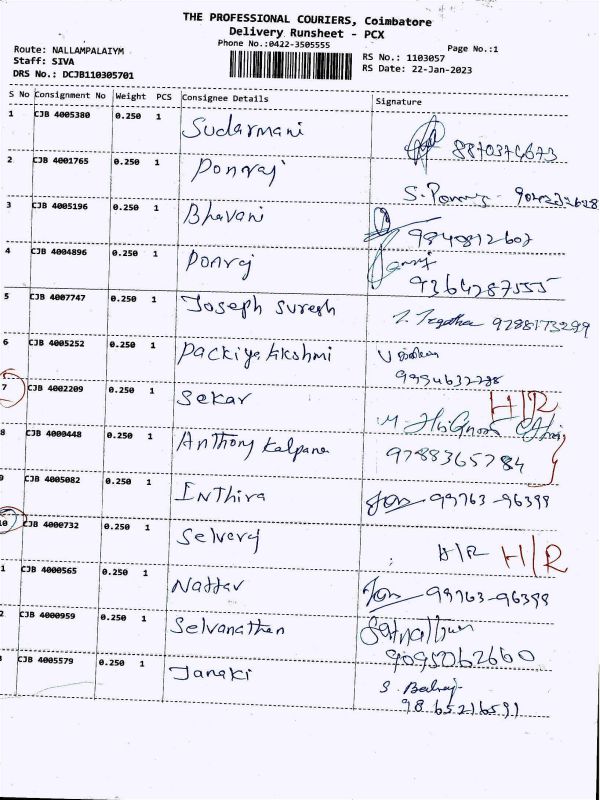 THE PROFESSIONAL COURIERS, Coimbatore
Delivery Runsheet - PCX
Phone No.:0422-3505555
Page No.:1
Route: NALLAMPALAIYM
Staff: SIVA
DRS No.: DCJB110305701
RS No.: 1103057
RS Date: 22-Jan-2023
S No Consignment No Weight PCS Consignee Details Signature
1 CJB 4005380 0.250 1 Sudarmani 8870376673
2 CJB 4001765 0.250 1 Ponraj
3 CJB 4005196 0.250 1 Bhavani 9984812607
4 CJB 4004896 0.250 1 Ponraj 9364287555
5 CJB 4007747 0.250 1 Joseph Suresh 9788173299
6 CJB 4005252 0.250 1 Packiya lakshmi
7 CJB 4002209 0.250 1 Sekar H/R
8 CJB 4000448 0.250 1 Anthony Kalpana 9788365784
9 CJB 4005082 0.250 1 Inthira 99763-96399
10 CJB 4000732 0.250 1 Selveraj H/R H/R
1 CJB 4000565 0.250 1 99763-96399
2 CJB 4000959 0.250 1 Selvanathan 9095062660
CJB 4005579 0.250 1 Janaki
9865216591